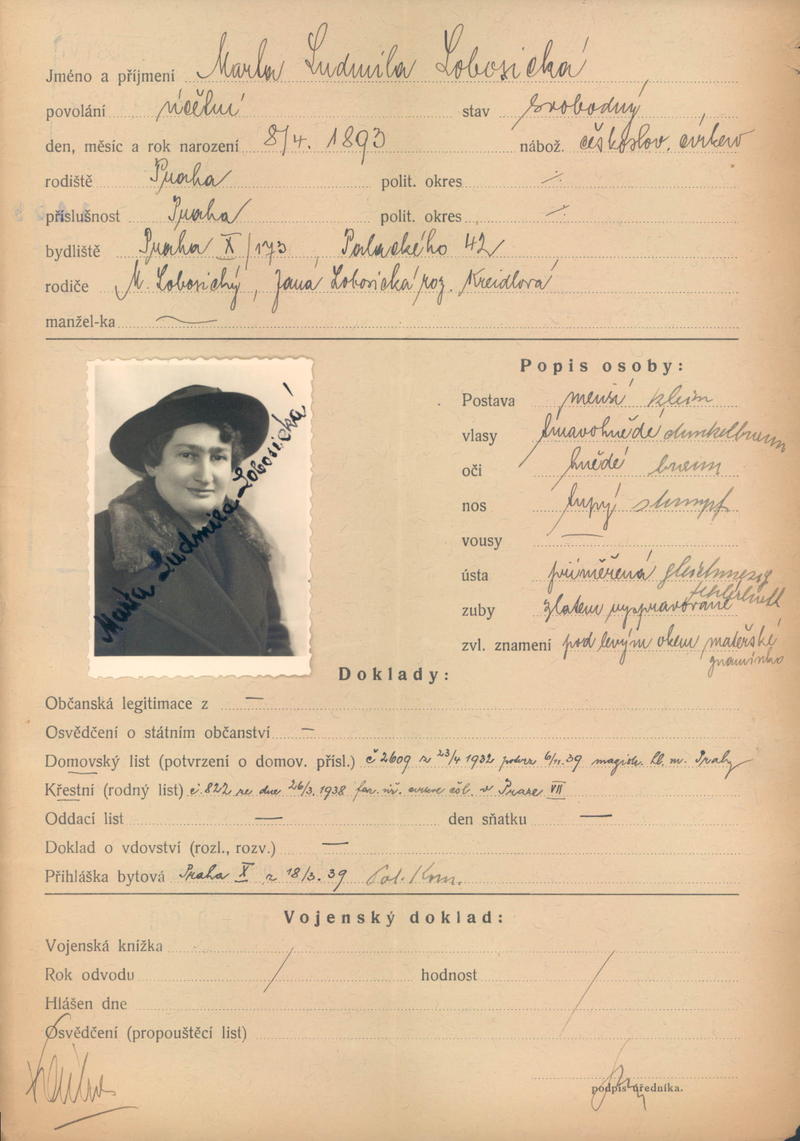 Jméno a příjmení Marta Ludmila Lobosická
povolání účetní stav svobodný,
den, měsíc a rok narození 8/4. 1893 nábož. českoslov. církev
rodiště Praha polit. okres
příslušnost Praha polit. okres
bydliště Praha X/173, Palackého 42
rodiče M. Lobosický, Jana Lobosická roz. Kreidlová
manžel-ka
Popis osoby:
Postava menší klein
vlasy tmavohnědé dunkelbraun
oči hnědé braun
nos tupý stumpf
vousy —
ústa přiměřená
zuby zlatem vyspravované
zvl. znamení pod levým okem mateřské
znamínko
Marta Ludmila Lobosická
Doklady:
Občanská legitimace z —
Osvědčení o státním občanství —
Domovský list (potvrzení o domov. přísl.) č 2609 z 23/4 1932 6/11.39 magistr. hl. m. Prahy
Křestní (rodný list) č. 822 ze dne 26/3. 1938 v Praze VII
Oddací list — den sňatku —
Doklad o vdovství (rozl., rozv.) —
Přihláška bytová Praha X z 18/3. 39 Pol. Kom.
Vojenský doklad:
Vojenská knížka
Rok odvodu / hodnost /
Hlášen dne
Osvědčení (propouštěcí list)
podpis úředníka.